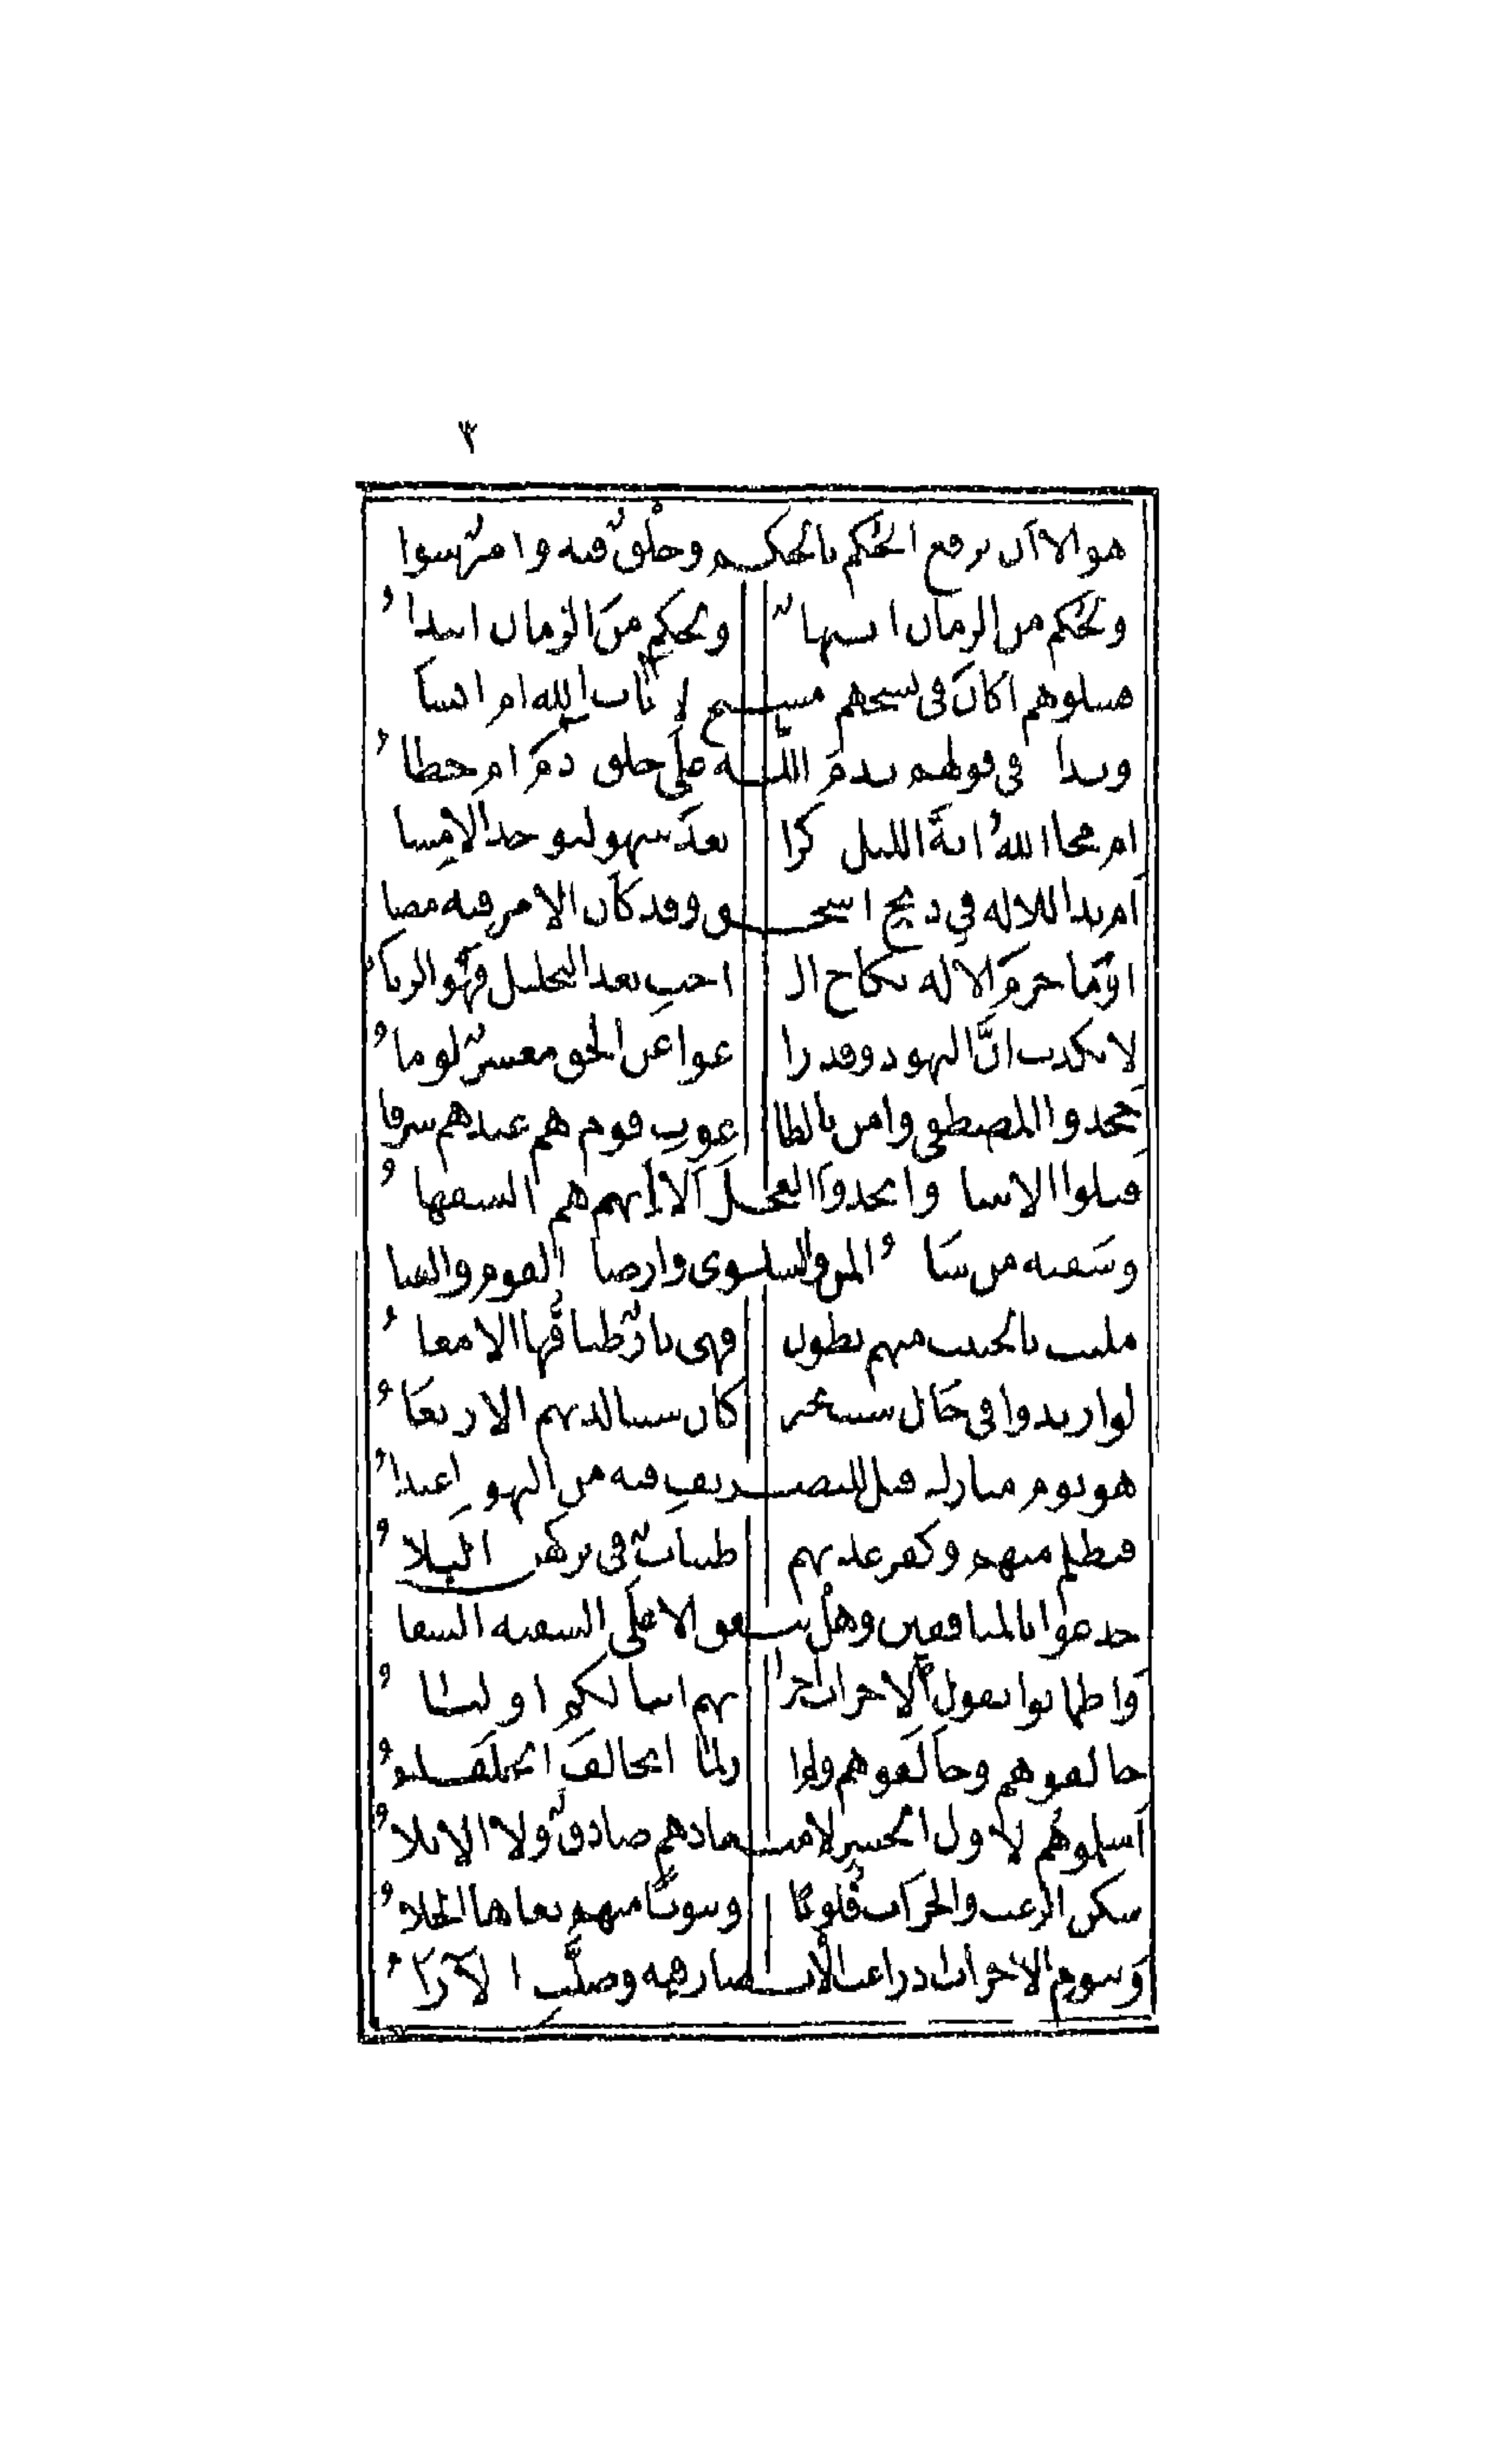 ٣
هو الا ان يرفع الحكم بالحكم وخلق فيه وامر سوا
ولحكم من الزمان انتهاء ولحكم من الزمان ابتداء
فسلوهم اكان في نسخهم مسخ لايات الله ام انسا
وبدا في قولهم ندم الله على خلق ادم ام خطاء
ام محا الله اية الليل ذكرا بعد سهو ليوجد الامسا
ام بدا للاله في ذبح اسحق وقد كان الامر فيه مضا
او ما حرم الاله نكاح الاخت بعد التحليل فهو الزناء
لا تكذب ان اليهود وقد زاغوا عن الحق معشر لوماء
جحدوا المصطفى وامن بالطاغوت قوم هم عندهم شرفا
قتلوا الانبيا واتخذوا العجل الا انهم هم السفهاء
وسفيه من ساءه المن والسلوى وارضاه الفوم والقثا
مليت بالخبيث منهم بطون فهي نار طباقها الامعاء
لو اريدوا في حال سبت بخير كان سبتا لديهم الاربعاء
هو يوم مبارك قيل للتصريف فيه من اليهود اعتداء
فبظلم منهم وكفر عدتهم طيبات في تركهن ابتلاء
خدعوا بالمنافقين وهل ينفق الا على السفيه الشقا
واطمانوا بقول الاحزاب اخوانهم اننا لكم اولياء
حالفوهم وخالفوهم ولم ادر لماذا تخالف الحلفاء
اسلموهم لاول الحشر لا ميعادهم صادق ولا الايلاء
سكن الرعب والخراب قلوبا وبيوتا منهم نعاها الجلاء
وبيوم الاحزاب اذ زاغت الابصار فيه وضلت الاراء